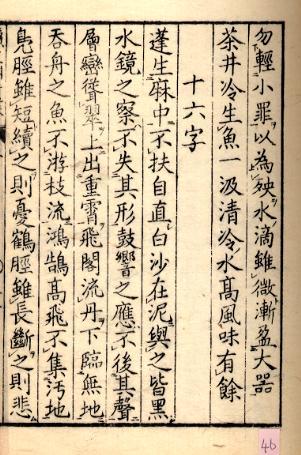 勿輕小罪以為殃水滴雖微漸盈大器
茶井冷生魚一汲清冷水高風味有餘
十六字
蓬生麻中不扶自直白沙在泥與之皆黑
水鏡之察不失其形鼓響之應不後其聲
層巒聳翠上出重霄飛閣流丹下臨無地
吞舟之魚不游枝流鴻鵠高飛不集汚地
鳧脛雖短續之則憂鶴脛雖長斷之則悲
46